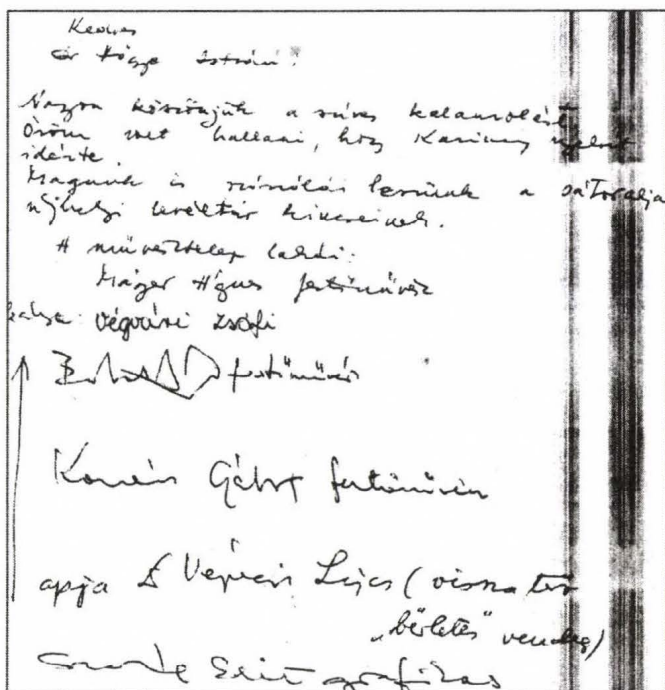 Kedves
dr Hőgye István!
Nagyon köszönjük a szíves kalauzolást
Öröm volt hallani, hogy Kazinczy nyelvét
idézte.
Magunk is szószólói leszünk a sátoralja
újhelyi levéltár kincseinek.
A művésztelep lakói:
Máger Ágnes festőművész
Végvári Zsófi
festőművész
Kováts Gábor festőművész
apja Dr Végvári Lajos (visszatérő
„bérletes" vendég)
Edit grafikus